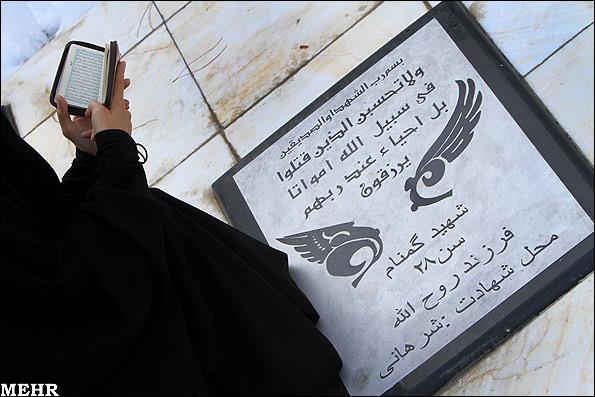 بسم رب الشهدا و الصدیقین
ولا تحسبن الذین قتلوا
فی سبیل الله امواتا
بل احیاء عند ربهم
یرزقون
شهید گمنام
سن ۲۸
فرزند روح الله
محل شهادت : شرهانی
MEHR